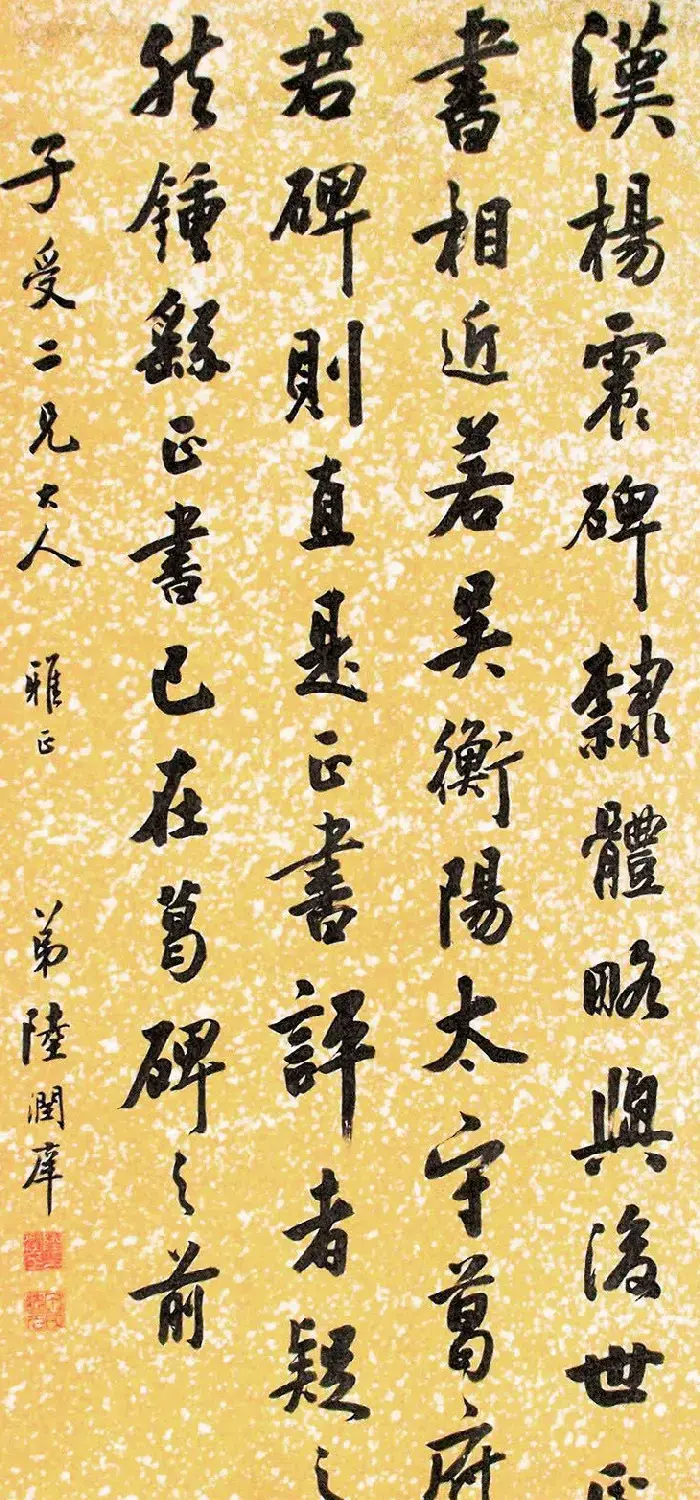 漢楊震碑隸體略與後世
書相近若吴衡陽太守葛府
君碑則直是正書評者疑之
然鍾繇正書已在葛碑之前
子受二兄大人 雅正 弟陸潤庠